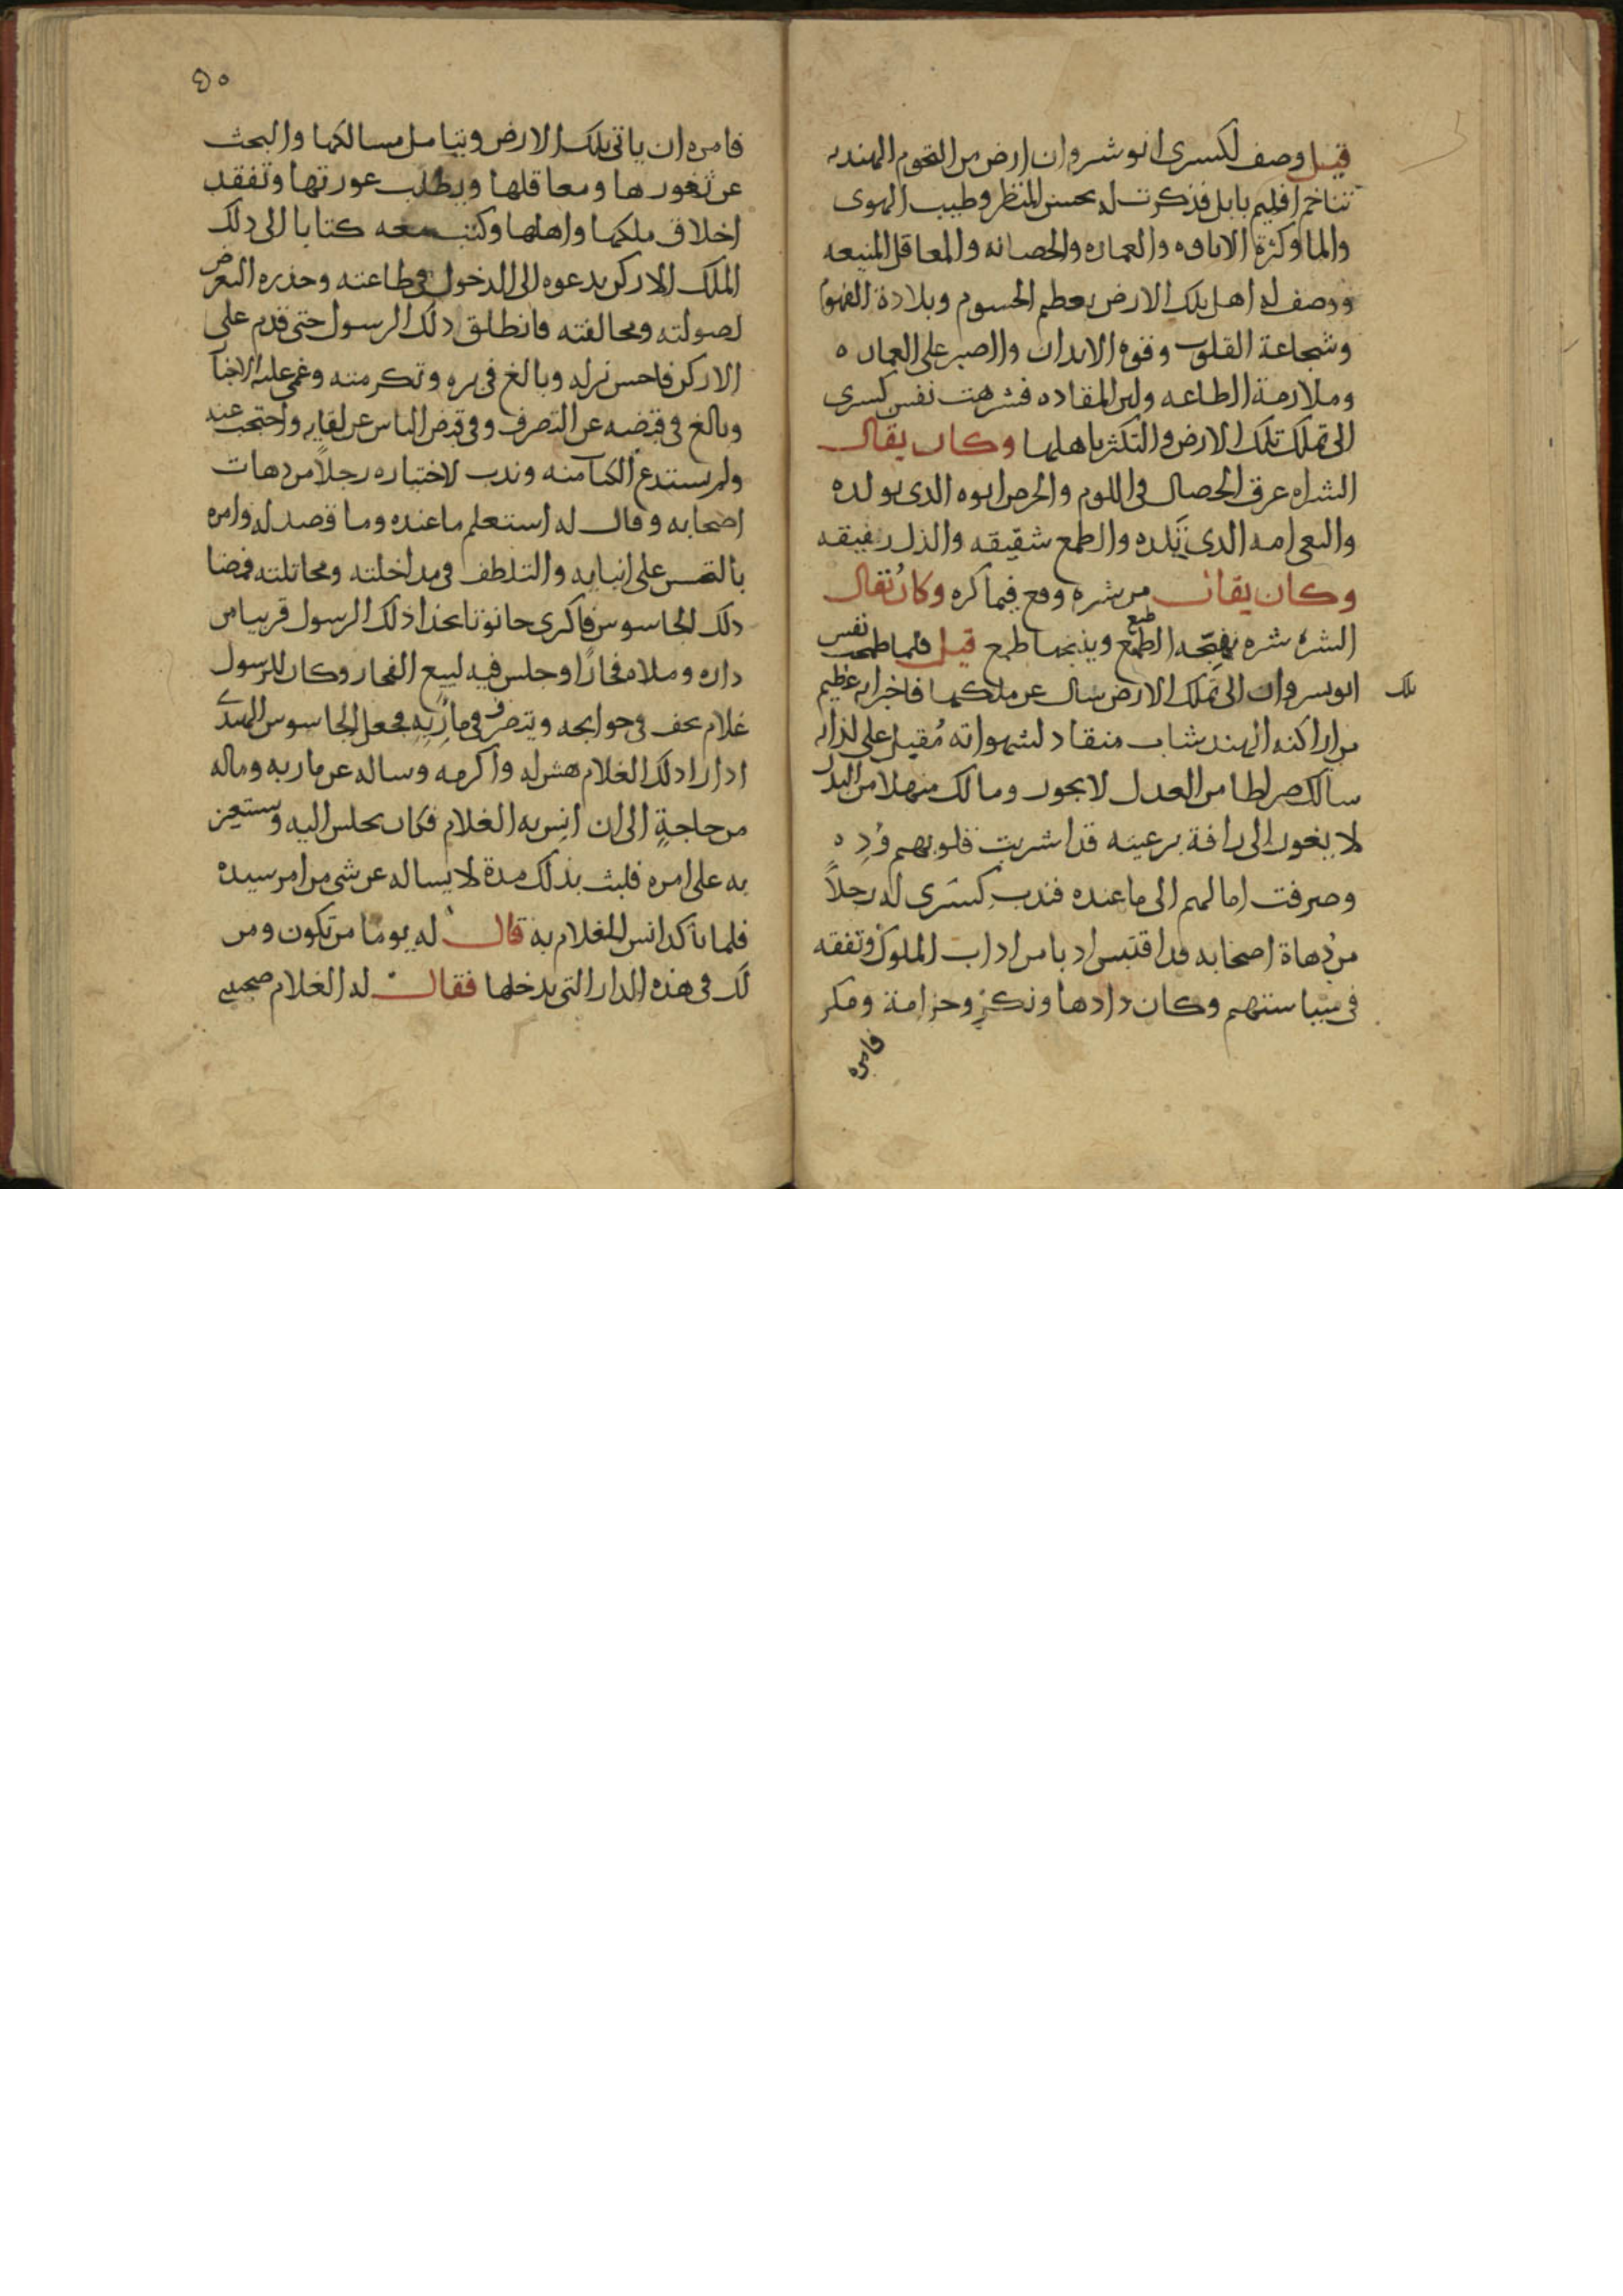 قيل وصف لكسرى انوشروان ارض من التخوم الهنديه
تتاخم اقليم بابل فذكرت له بحسن المنظر وطيب الهوى
والما وكثرة الاباوه والعماره والحصانه والمعاقل المنيعه
ووصف له اهل تلك الارض بعظم الجسوم وبلادة الفهوم
وشجاعة القلوب وقوه الابدان والصبر على العماده
وملازمة الطاعه ولين المقاده فشرهت نفس كسرى
الى تملك تلك الارض والتكثر باهلها وكان يقال
الشراه عرق الخصال في اللوم والحرص ابوه الذى يولده
والبغى امه الذى تلده والطمع شقيقه والذل رفيقه
وكان يقال من شره وقع فيما كره وكان يقال
الشره شره ينتجه الطمع ويذبحها طمع طبع قيل فلما طمحت نفس
انوشروان الى تملك الارض سال عن ملكها فاخبر انه عظيم
تلك
من اراكنه الهند شاب منقاد لشهواته مُقبل على لذاته
سالك صراطا من العدل لا يجور ومالك منهلا من البذل
لا يغور الى رافة برعيته قد اشربت قلوبهم وُدِه
وصرفت امالهم الى ما عنده فندب كِسَرى له رجلاً
من دُهاة اصحابه قد اقتبس ادبا من اداب الملوك وتفقه
فى سياستهم وكان ذا دها ونكرٍ وحزامة ومكر
فامره
٥٠
فامره ان ياتى تلك الارض ويتامل مسالكها والبحث
عن ثغورها ومعاقلها ويطلب عورتها وتفقد
اخلاق ملكها واهلها وكتب معه كتابا الى ذلك
الملك الاركن يدعوه الى الدخول فى طاعته وحذره التعرض
لصولته ومخالفته فانطلق ذلك الرسول حتى قدم على
الاركن فاحسن نزله وبالغ فى بره وتكرمته وغمى عليه الاخبا
وبالغ فى قبضه عن التصرف وفى قبض الناس عن لقايه واحتجب عنه
ولم يستدع الكتاب منه وندب لاختباره رجلاً من دهات
اصحابه وقال له استعلم ما عنده وما قصد له وامره
بالتجسس على انبايه والتلطف فى مداخلته ومخاتلته فمضا
ذلك الجاسوس فاكرى حانوتا بحذا ذلك الرسول قريبا من
داره وملاه فخارًا وجلس فيه لبيع الفخار وكان للرسول
غلام يخف فى حوايجه ويتصرف فى ماربه فجعل الجاسوس الهندى
اذا را ذلك الغلام هش له واكرمه وساله عن ماربه وماله
من حاجةٍ الى ان انِس به الغلام فكان يجلس اليه ويستعين
به على امره فلبث بذلك مدة لا يساله عن شى من امر سيده
فلما تاكد انس الغلام به قال له يوما من تكون ومن
لك فى هذه الدار التى يدخلها فقال له الغلام صحبنى